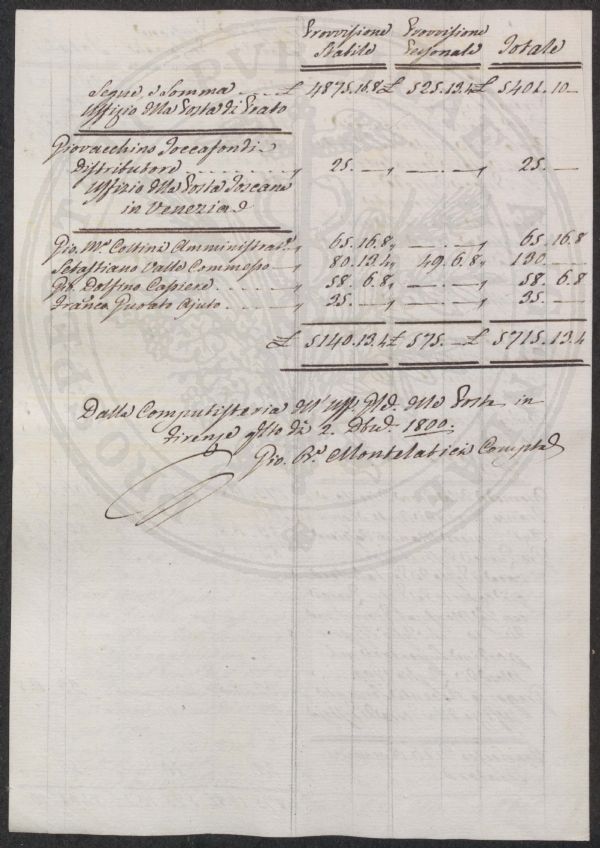 Provvisione Provvisione
Stabile Personale Totale
Segue, e Somma £ 4875.16.8 £ 525.13.4 £ 5401.10.—
Uffizio della Posta di Prato
Giovacchino Toccafondi
Distributore „ 25.—.— „ —.—.— „ 25.—
Uffizio della Posta Toscana
in Venezia
Gio. Ma. Cottini Amministratre. „ 65.16.8 „ —.—.— „ 65.16.8
Sebastiano Valle Commesso „ 80.13.4 „ 49.6.8 „ 130.—
Gio. Dolfino Capiere „ 58.6.8 „ —.—.— „ 58.6.8
Franco Ajuto „ 35.—.— „ —.—.— „ 35.—
£ 5140.13.4 £ 575.— £ 5715.13.4
Dalla Computisteria dell' Uff. Gle. delle Poste in
Firenze questo dì 2. Dbre. 1800.
Gio. Ba. Montelatici Compta.